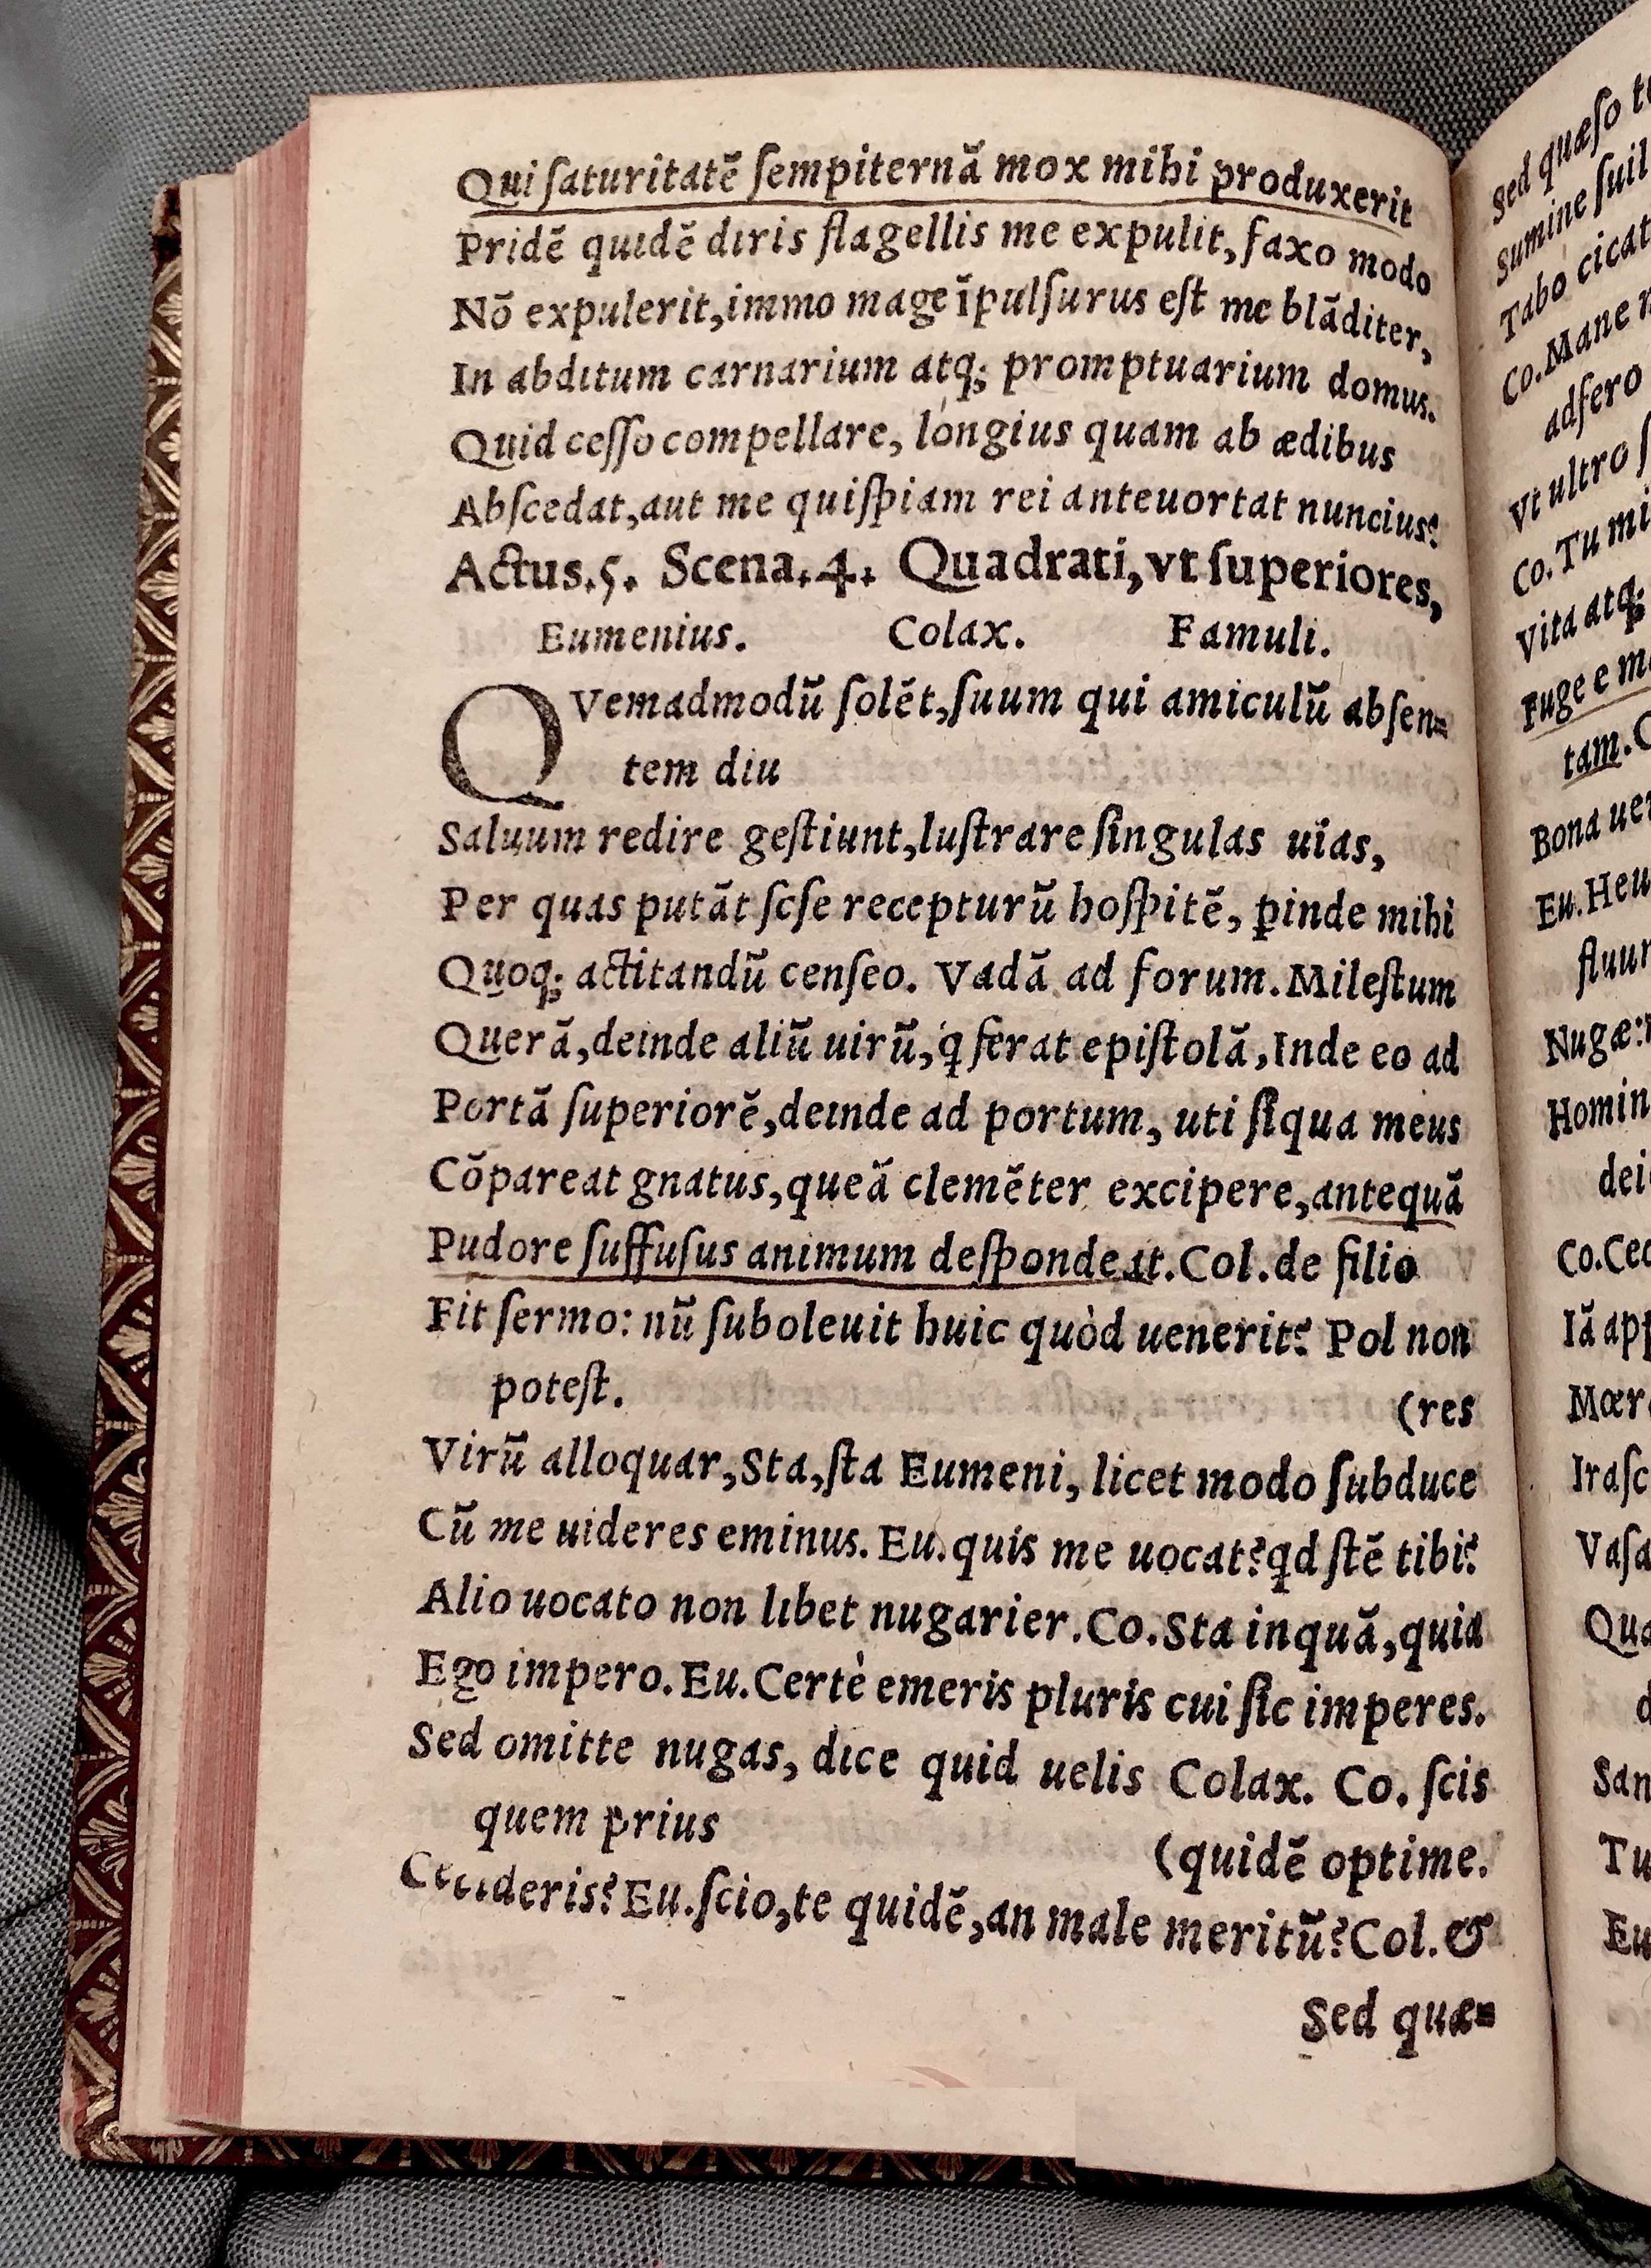 Qui ſaturitatẽ ſempiternã mox mihi produxerit
Pridẽ quidẽ diris flagellis me expulit, faxo modo
Nõ expulerit, immo mage ĩpulſurus eſt me blãditer,
In abditum carnarium atq; promptuarium domus.
Quid ceſſo compellare, longius quam ab ædibus
Abſcedat, aut me quiſpiam rei anteuortat nuncius?
Actus.5. Scena.4. Quadrati, vt ſuperiores,
Eumenius. Colax. Famuli.
QVemadmodũ ſolẽt, ſuum qui amiculũ abſen=
tem diu
Saluum redire geſtiunt, luſtrare ſingulas uias,
Per quas putãt ſeſe recepturũ hoſpitẽ, ꝑinde mihi
Quoq; actitandũ cenſeo. Vadã ad forum. Mileſtum
Querã, deinde aliũ uirũ, q̇ ferat epiſtolã, Inde eo ad
Portã ſuperiorẽ, deinde ad portum, uti ſiqua meus
Cõpareat gnatus, queã clemẽter excipere, antequã
Pudore ſuffuſus animum deſpondeat. Col. de filio
Fit ſermo: nũ ſuboleuit huic quòd uenerit? Pol non
poteſt. (res
Virũ alloquar, Sta, ſta Eumeni, licet modo ſubduce
Cũ me uideres eminus. Eu. quis me uocat? qd ſtẽ tibi?
Alio uocato non libet nugarier. Co. Sta inquã, quia
Ego impero. Eu. Certè emeris pluris cui ſic imperes.
Sed omitte nugas, dice quid uelis Colax. Co. ſcis
quem prius
(quidẽ optime.
Eu. ſcio, te quidẽ, an male meritũ? Col. &
Sed quæ=
Sed quæſo
Sumine
Tabo
Co. Mane
adfero
Vt ultro
Co. Tu
Vita atq;
Fuge e
tam.
Bona
Eu. Heu
Nugæ:
Co.
Iã
Tu
Eu